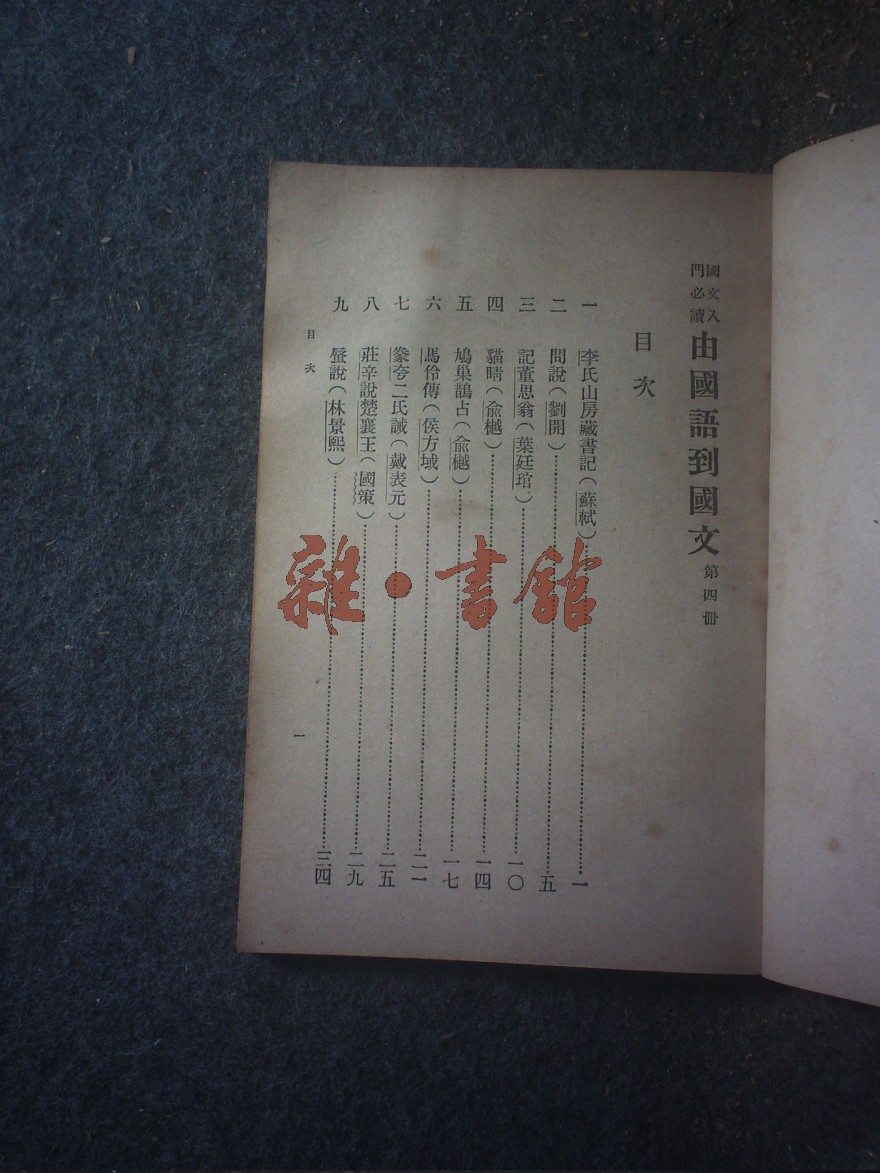 國文入門必讀 由國語到國文 第四冊
目次
一 李氏山房藏書記(蘇軾)……一
二 問說(劉開)……五
三 記董思翁(葉廷琯)……一〇
四 貓睛(俞樾)……一四
五 鳩巢鵲占(俞樾)……一七
六 馬伶傳(侯方域)……二一
七 豢夸二氏誡(戴表元)……二五
八 莊辛說楚襄王(國策)……二九
九 蜃說(林景熙)……三四
目次 一
雜·書館